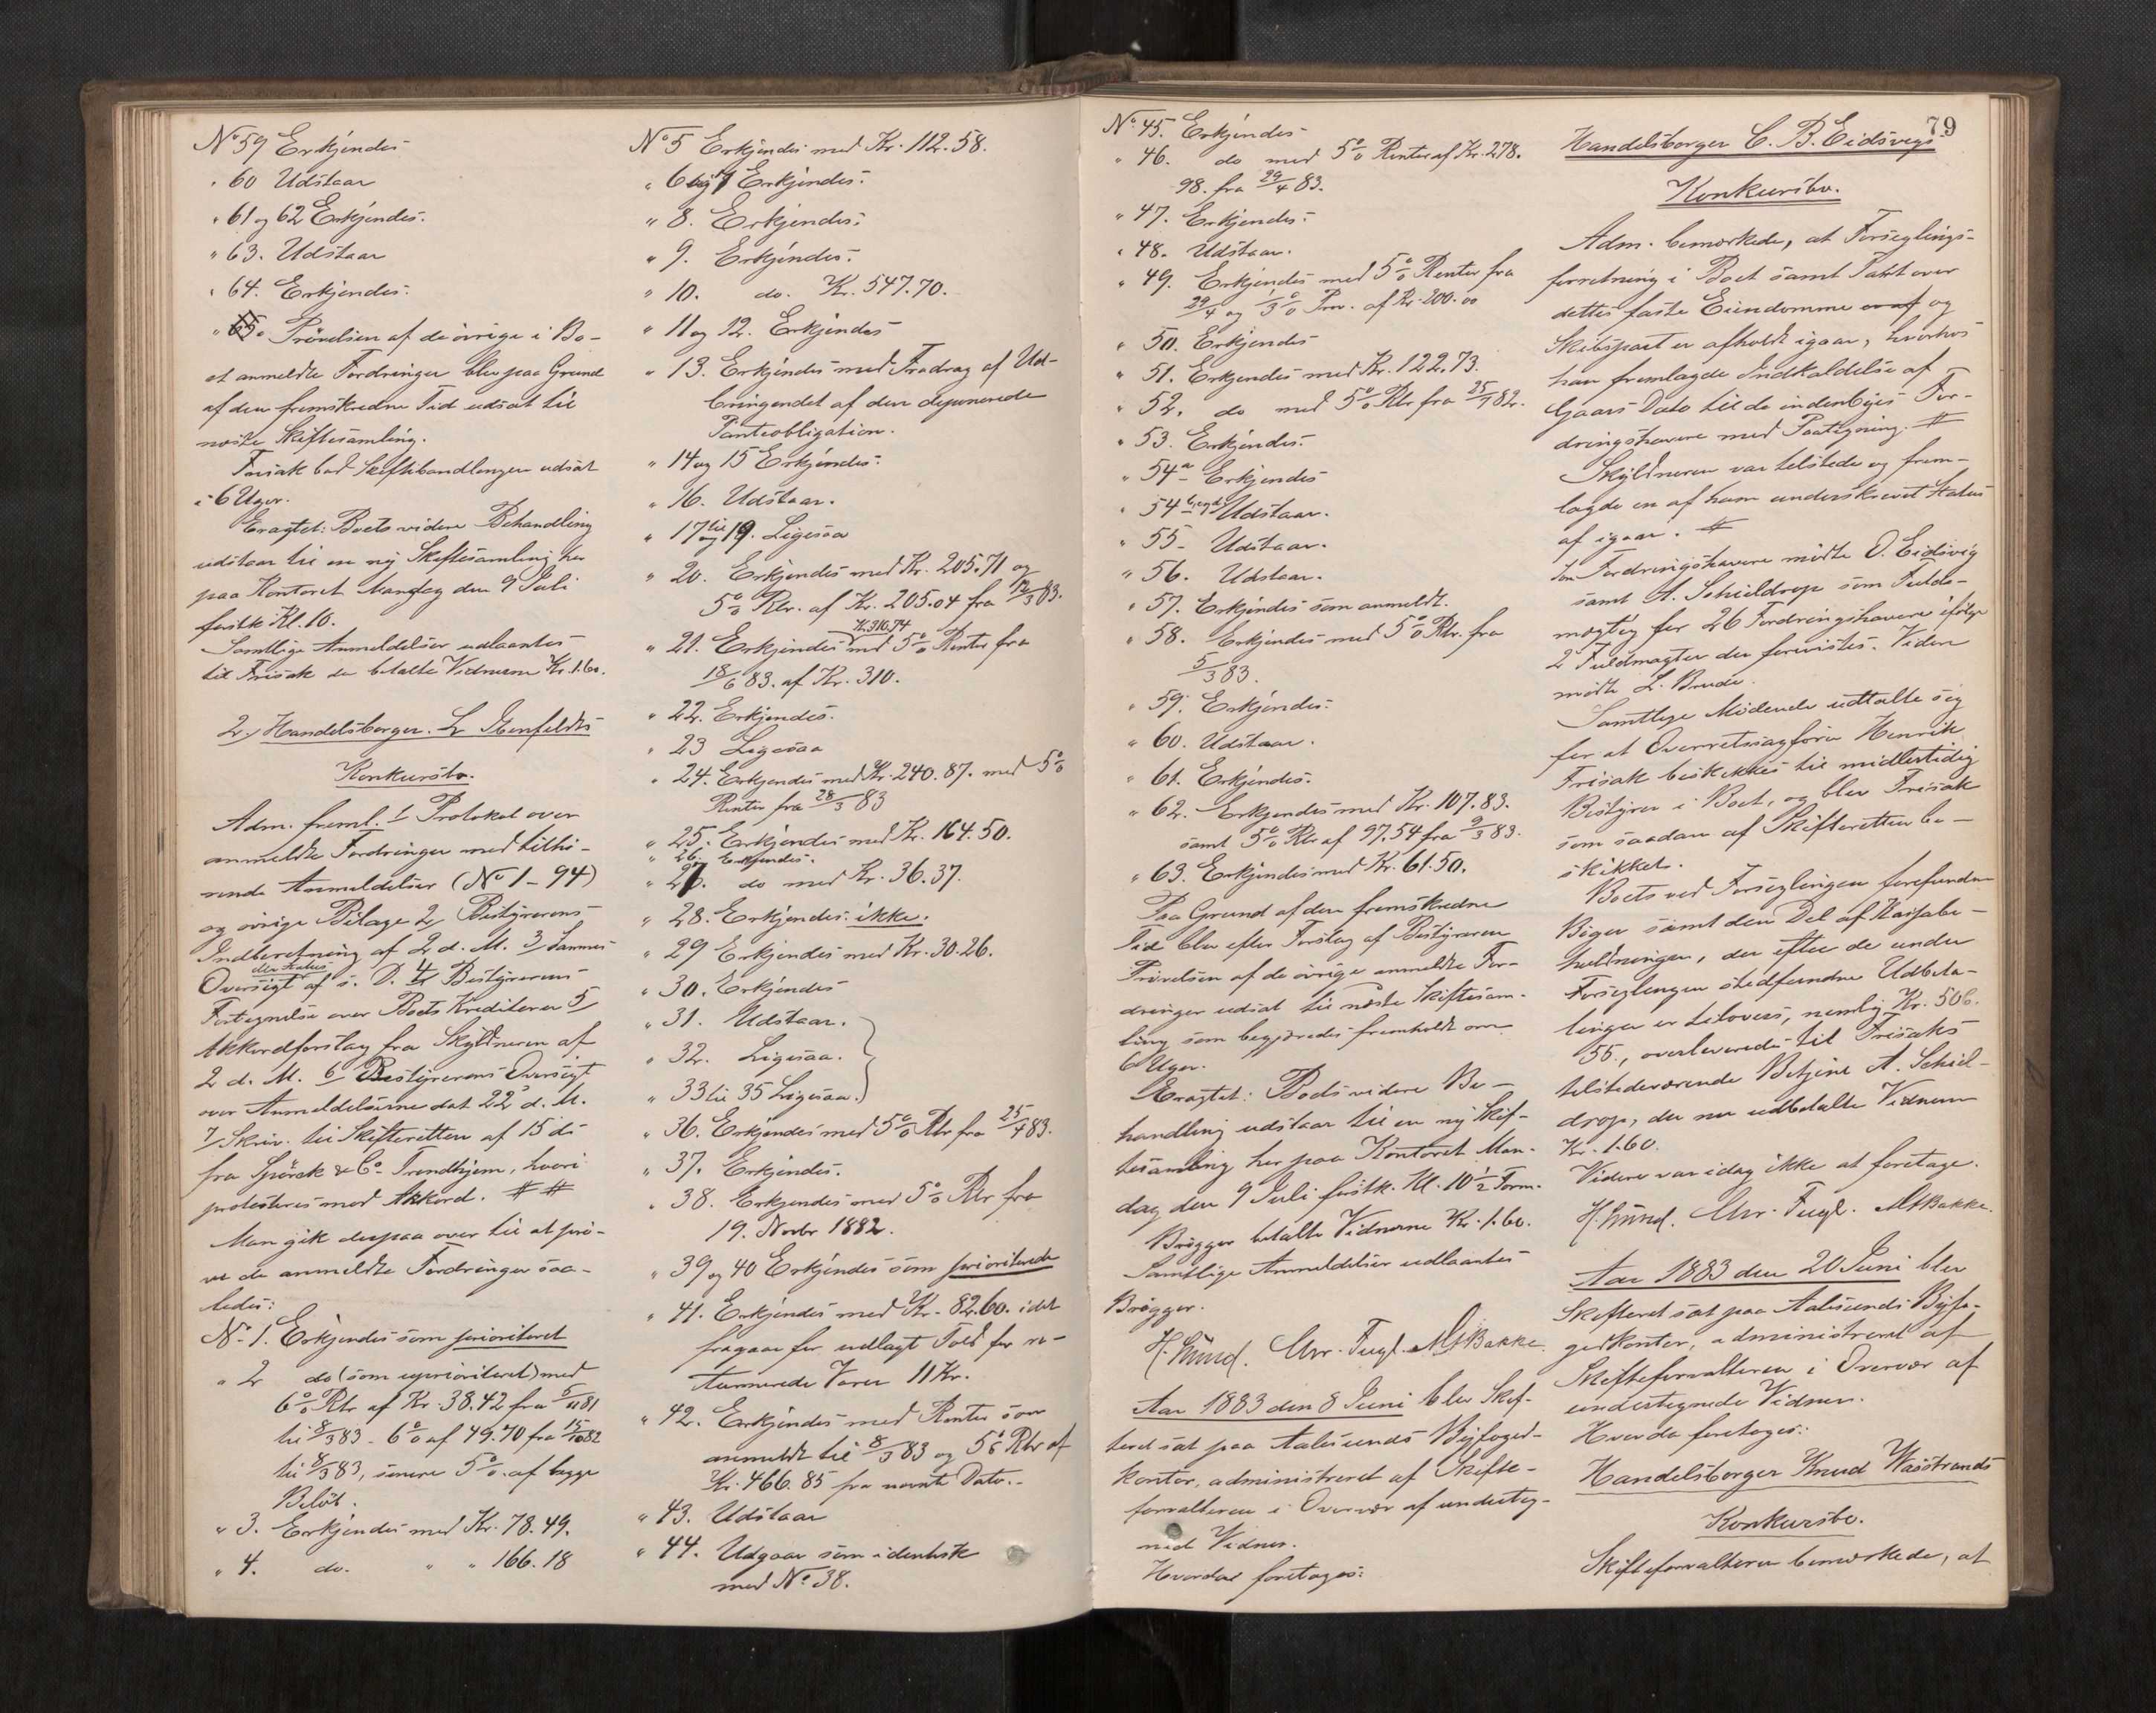 No 59 Erkjendes
" 60 Udstaar
" 61 og 62 Erkjendes.
" 63. Udstaar
" 64. Erkjendes.
" 65. Prøvelsen af de øvrige i Bo-
et anmeldte Fordringer blev paa Grund
af den fremskredne Tid udsat til
næste Skiftesamling.
Frisak bad Skiftebehandlingen udsat
i 6 Uger.
Eragtet: Boets videre Behandling
udstaar til en ny Skiftesamling her
paa Kontoret Mandag den 9 Juli
førstk. Kl. 10.
Samtlige Anmeldelser udlaantes
til Frisak der betalte Vidnerne Kr. 1.60.
2, Handelsborger L.
Konkursbo.
Adm. freml. 1 Protokol over
anmeldte Fordringer med tilhø-
rende Anmeldelser (No 1-94)
og øvrige Bilage 2, Bestyrerens
Indberetning af 2 d. M. 3, Sammes
Oversigt over Status af s. D. 4, Bestyrerens
Fortegnelse over Boets Kreditorer 5,
Akkordforslag fra Skyldneren af
2 d. M. 6, Bestyrerens Oversigt
over Anmeldelserne dat 22 d. M.
7, Skriv. til Skifteretten af 15 ds
fra Spörck & Co. Trondhjem, hvori
protesteres mod Akkord. # #
Man gik derpaa over til at prø-
ve de anmeldte Fordringer saa-
ledes:
No 1. Erkjendes som prioriteret
" 2 do (som uprioriteret) med
6% Rtr af Kr. 38.42 fra 5/11 81
til 8/3 83 - 6% af 49.70 fra 15/10 82
til 8/3 83, senere 5% af begge
Beløb.
" 3. Erkjendes med Kr. 78.49.
" 4. do. " " 166.18
No 5 Erkjendes med Kr. 112.58.
" 6 og 7 Erkjendes.
" 8. Erkjendes.
" 9. Erkjendes.
" 10. do. Kr. 547.70.
" 11 og 12. Erkjendes
" 13. Erkjendes med Fradrag af Ud-
bringendet af den deponerede
Panteobligation.
" 14 og 15 Erkjendes.
" 16. Udstaar.
" 17 til 19. Ligesaa
" 20. Erkjendes med Kr. 205.71 og
5% Rtr. af Kr. 205.04 fra 12/3 83.
" 21. Erkjendes Kr. 310.74 med 5% Renter fra
18/6 83. af Kr. 310.
" 22. Erkjendes.
" 23 Ligesaa
" 24. Erkjendes med Kr. 240.87. med 5%
Renter fra 28/3 83
" 25. Erkjendes med Kr. 164.50.
" 26. Erkjendes.
" 27. do med Kr. 36.37.
" 28. Erkjendes ikke.
" 29 Erkjendes med Kr. 30.26.
" 30. Erkjendes
" 31. Udstaar.
" 32. Ligesaa.
" 33 til 35 Ligesaa.
" 36. Erkjendes med 5% Rtr fra 25/4 83.
" 37. Erkjendes.
" 38. Erkjendes med 5% Rtr fra
19. Novbr 1882.
" 39 og 40 Erkjendes som prioriterede
" 41. Erkjendes med Kr. 82.60. idet
fragaar for udlagt Told for re-
tournerede Varer 11 Kr.
" 42. Erkjendes med Renter som
anmeldt til 8/3 83 og 5% Rtr af
Kr. 466.85 fra nævnte Dato.
" 43. Udstaar
" 44. Udgaar som identisk
med No 38.
No 45. Erkjendes
" 46. do med 5% Renter af Kr. 278.
98. fra 29/4 83.
" 47. Erkjendes.
" 48. Udstaar.
" 49. Erkjendes med 5% Renter fra
29/4 og 1/3% Prov. af Kr. 200.00
" 50. Erkjendes
" 51. Erkjendes med Kr. 122.73.
" 52. do med 5% Rtr fra 25/9 82.
" 53. Erkjendes.
" 54 a Erkjendes
" 54 b og c Udstaar.
" 55- Udstaar.
" 56. Udstaar.
" 57. Erkjendes som anmeldt.
" 58. Erkjendes med 5% Rtr. fra
5/3 83.
" 59. Erkjendes.
" 60. Udstaar.
" 61. Erkjendes.
" 62. Erkjendes med Kr. 107.83.
samt 5% Rtr af 97.54 fra 9/3 83.
" 63. Erkjendes med Kr. 61.50.
Paa Grund af den fremskredne
Tid blev efter Forslag af Bestyreren
Prøvelsen af de øvrige anmeldte For-
dringer udsat til næste Skiftesam-
ling som begjæredes fremholdt om
6 Uger.
Eragtet: Boets videre Be-
handling udstaar til en ny Skif-
tesamling her paa Kontoret Man-
dag den 9 Juli førstk. Kl. 10 1/2 Form.
Brøgger betalte Vidnerne Kr. 1.60.
Samtlige Anmeldelser udlaantes
Brøgger.
H. Lund. Chr. Fugl. Bakke.
Aar 1883 den 8 Juni blev Skif-
teret sat paa Aalesunds Byfoged-
kontor, administreret af Skifte-
forvalteren i Overvær af underteg-
nede Vidner.
Hvorda foretoges:
79
Handelsborger C. B. Eidsvigs
Konkursbo.
Adm. bemærkede, at Forseglings-
forretning i Boet samt Taxt over
dettes faste Eiendomme og
Skibspart er afholdt igaar, hvorhos
han fremlagde Indkaldelse af
Gaars Dato til de indenbyes For-
dringshavere med Paategning. #
Skyldneren var tilstede og frem-
lagde en af ham underskrevet Status
af igaar. #
Som Fordringshavere mødte O. Eidsvig
samt A. Schieldrop som Fuld-
mægtig for 26 Fordringshavere ifølge
2 Fuldmagter der forevistes. Videre
mødte L. Brude.
Samtlige Mødende udtalte sig
for at Overretssagfører Henrik
Frisak beskikkes til midlertidig
Bestyrer i Boet, og blev Frisak
som saadan af Skifteretten be-
skikket.
Boets ved Forseglingen forefundne
Bøger samt den Del af Kassabe-
holdningen, der efter de under
Forseglingen stedfundne Udbeta-
linger er tilovers, nemlig Kr. 506.
55., overleveredes til Frisaks
tilstedeværende Betjent A. Schiel-
drop, der nu udbetalte Vidnerne
Kr. 1.60.
Videre var idag ikke at foretage.
H. Lund. Chr. Fugl. Bakke.
Aar 1883 den 20 Juni blev
Skifteret sat paa Aalesunds Byfo-
gedkontor, administreret af
Skifteforvalteren i Overvær af
undertegnede Vidner.
Hvorda foretoges:
Handelsborger Knud Waöstrands
Konkursbo.
Skifteforvalteren bemærkede, at